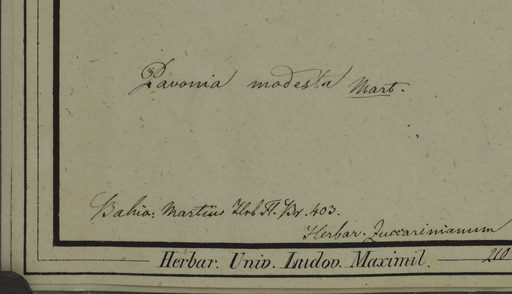 Pavonia modesta Mart.
Bahia: Martius Hrb Fl. Br. 403.
Herbar. Zuccarinianum
Herbar. Univ. Ludov. Maximil. 210